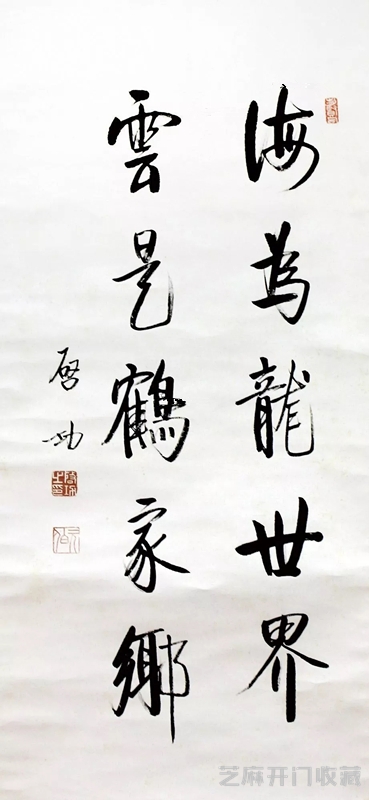 海為龍世界
雲是鶴家鄉
啓功
芝麻开门收藏